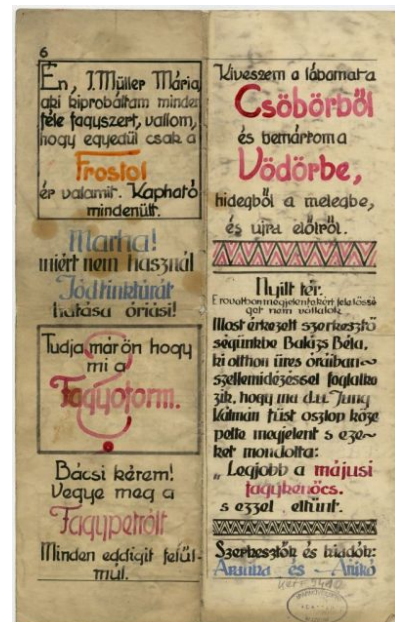 6
Én, J. Müller Mária,
aki kipróbáltam minden
féle fagyszert, vallom,
hogy egyedül csak a
Frostol
ér valamit. Kapható
mindenütt.
Marha!
miért nem használ
Jódtinktúrát
hatása óriási!
Tudja már ön hogy
mi a
Fagyoform.
?
Bácsi kérem!
Vegye meg a
Fagypetrólt
Minden eddigit felül-
múl.
Kiveszem a lábamat a
Csöbörből
és bemártom a
Vödörbe,
hidegből a melegbe,
és újra előlről.
Nyilt tér.
E rovatban megjelentekért felelőssé
get nem vállalok
Most érkezett szerkesztő
ségünkbe Bakizs Béla,
ki otthon üres óráiban
szellemidézéssel foglalko
zik, hogy ma d.u. Jung
Kálmán füst oszlop köze
pette megjelent s eze~
ket mondotta:
„Legjobb a májusi
fagykenőcs.
s ezzel eltünt.
Szerkesztők és kiadók:
Annuka és Anikó